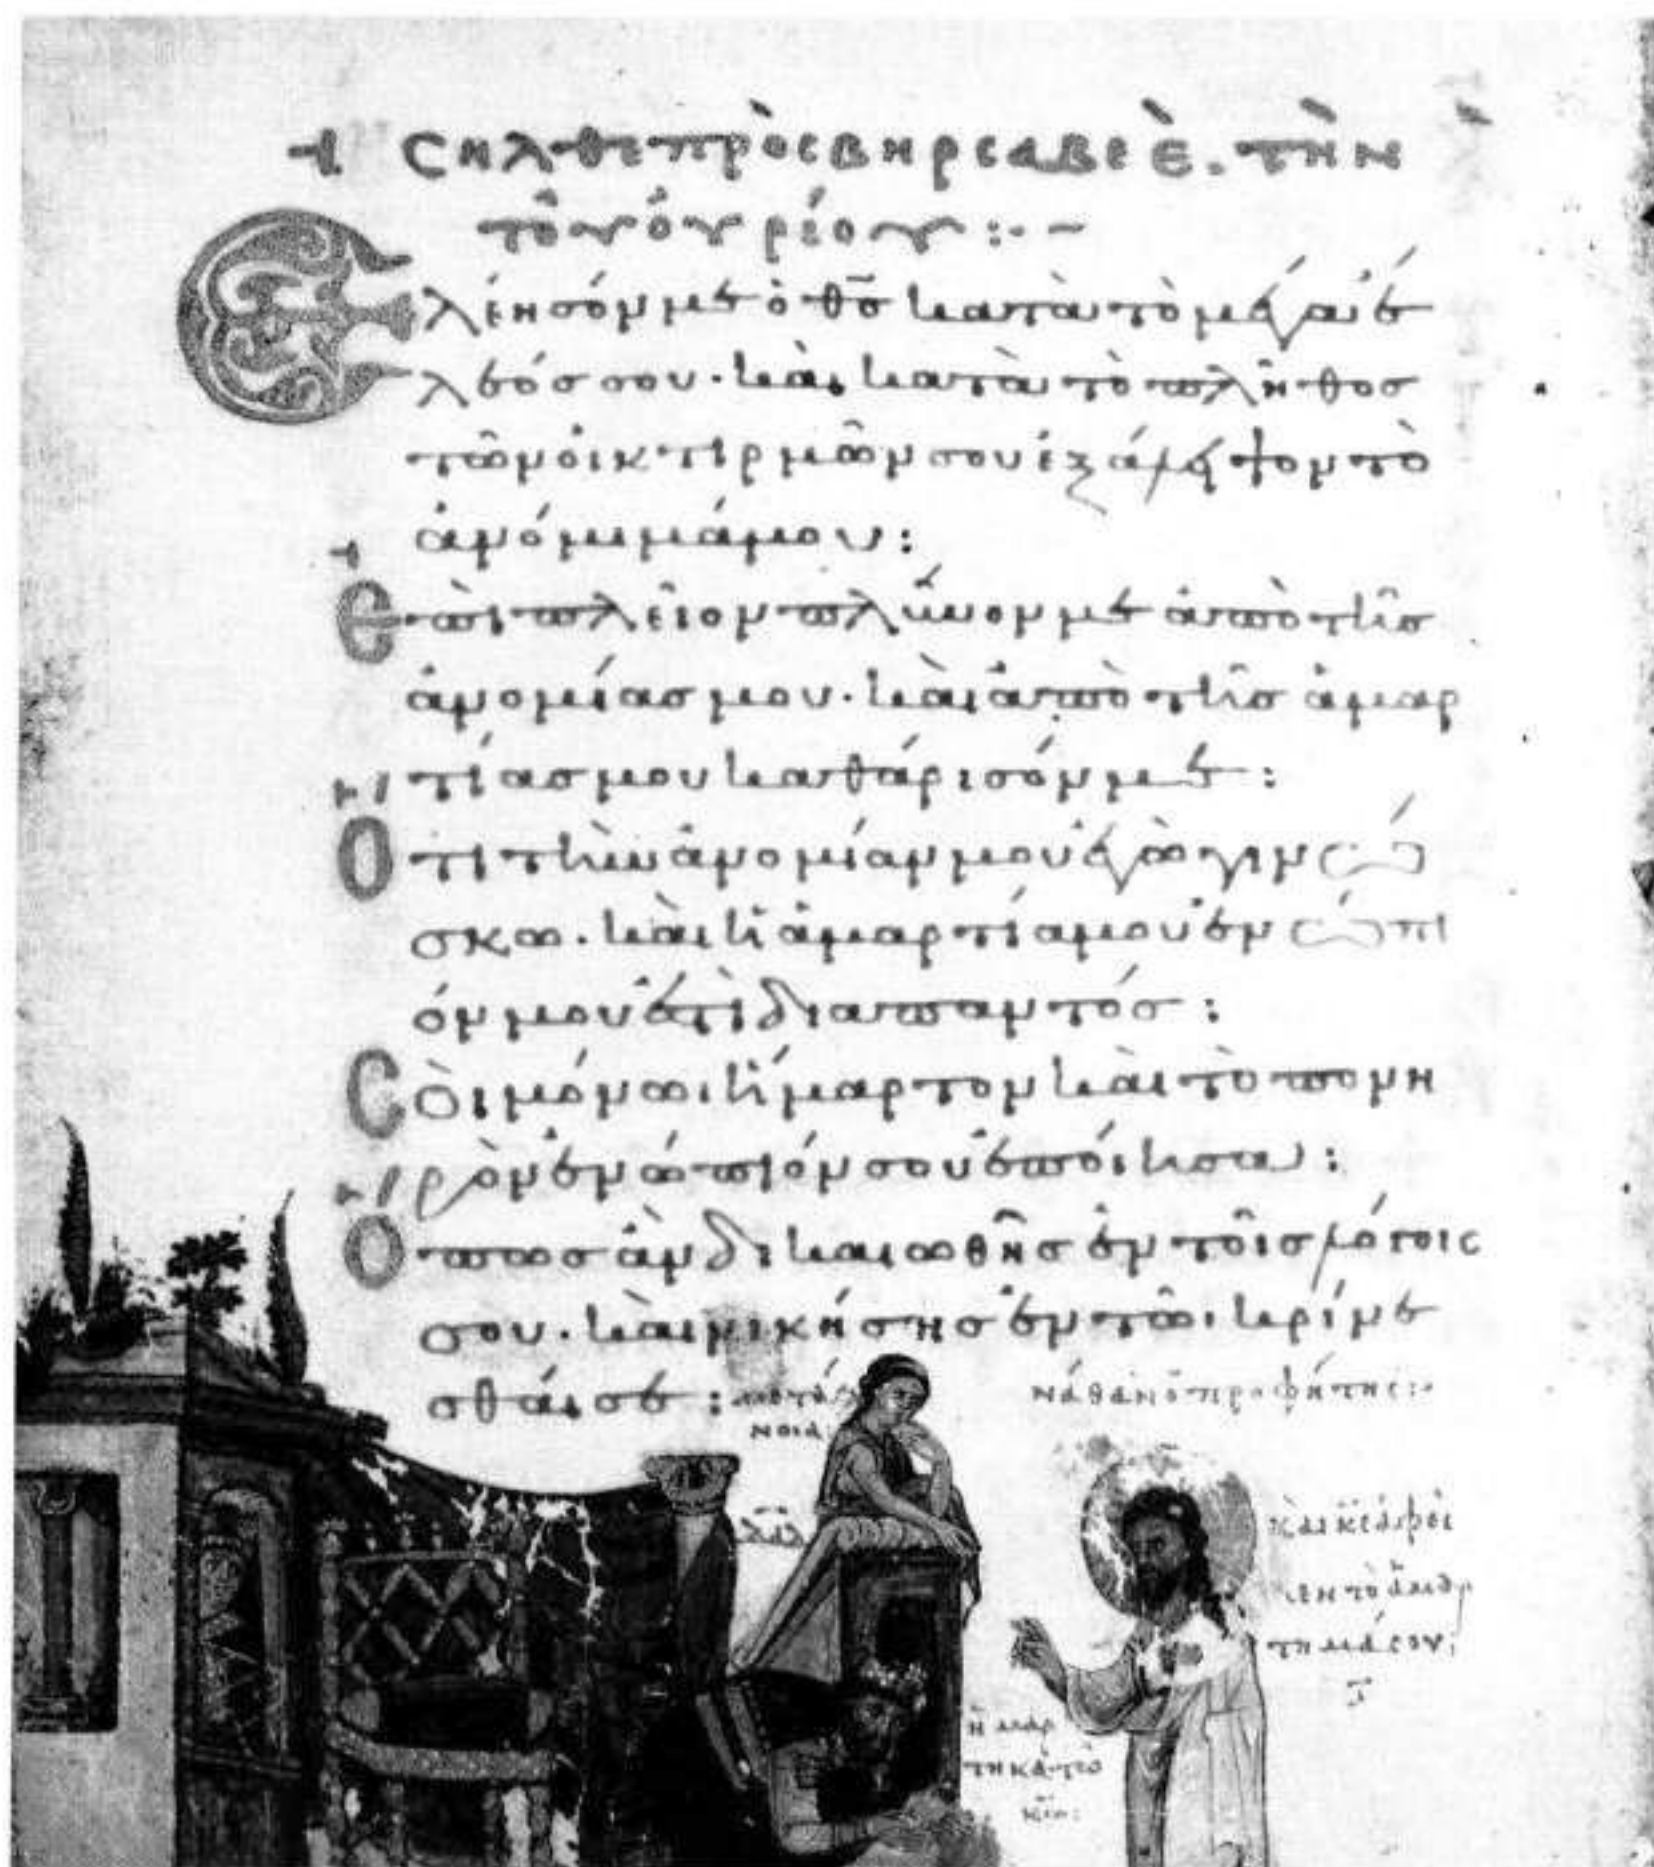 εισηλθε προς βηρσαβεὲ. τὴν
τοῦ οὐρίου :· ~
Ἐλέησόν με ὁ θς κατὰ τὸ μέγα ἔ
λεόσ σου · καὶ κατὰ τὸ πλῆθοσ
τῶν οἰκτιρμῶν σου ἐξάλειψον τὸ
ἀνόμημά μου :
Ἐπὶ πλεῖον πλῦνόν με ἀπὸ τῆσ
ἀνομίασ μου · καὶ ἀπὸ τῆσ ἁμαρ
τίασ μου καθάρισόν με :
Ὅτι τὴν ἀνομίαν μου ἐγὼ γινώ
σκω · καὶ ἡ ἁμαρτία μου ἐνώπι
όν μου ἐστὶ διαπαντόσ :
Σοὶ μόνωι ἥμαρτον καὶ τὸ πονη
ρὸν ἐνώπιόν σου ἐποίησα :
Ὅπωσ ἂν δικαιωθῆσ ἐν τοῖσ λόγοις
σου · καὶ νικήσησ ἐν τῶι κρίνε
σθαί σε :
μετά
νοια
νάθαν ὁ προφήτης :~
δαδ
κὰι κς ἀφεῖ
λεν τὸ ἁμάρ
τημά σου :
ἡμάρ
τηκα τῶ
κω :